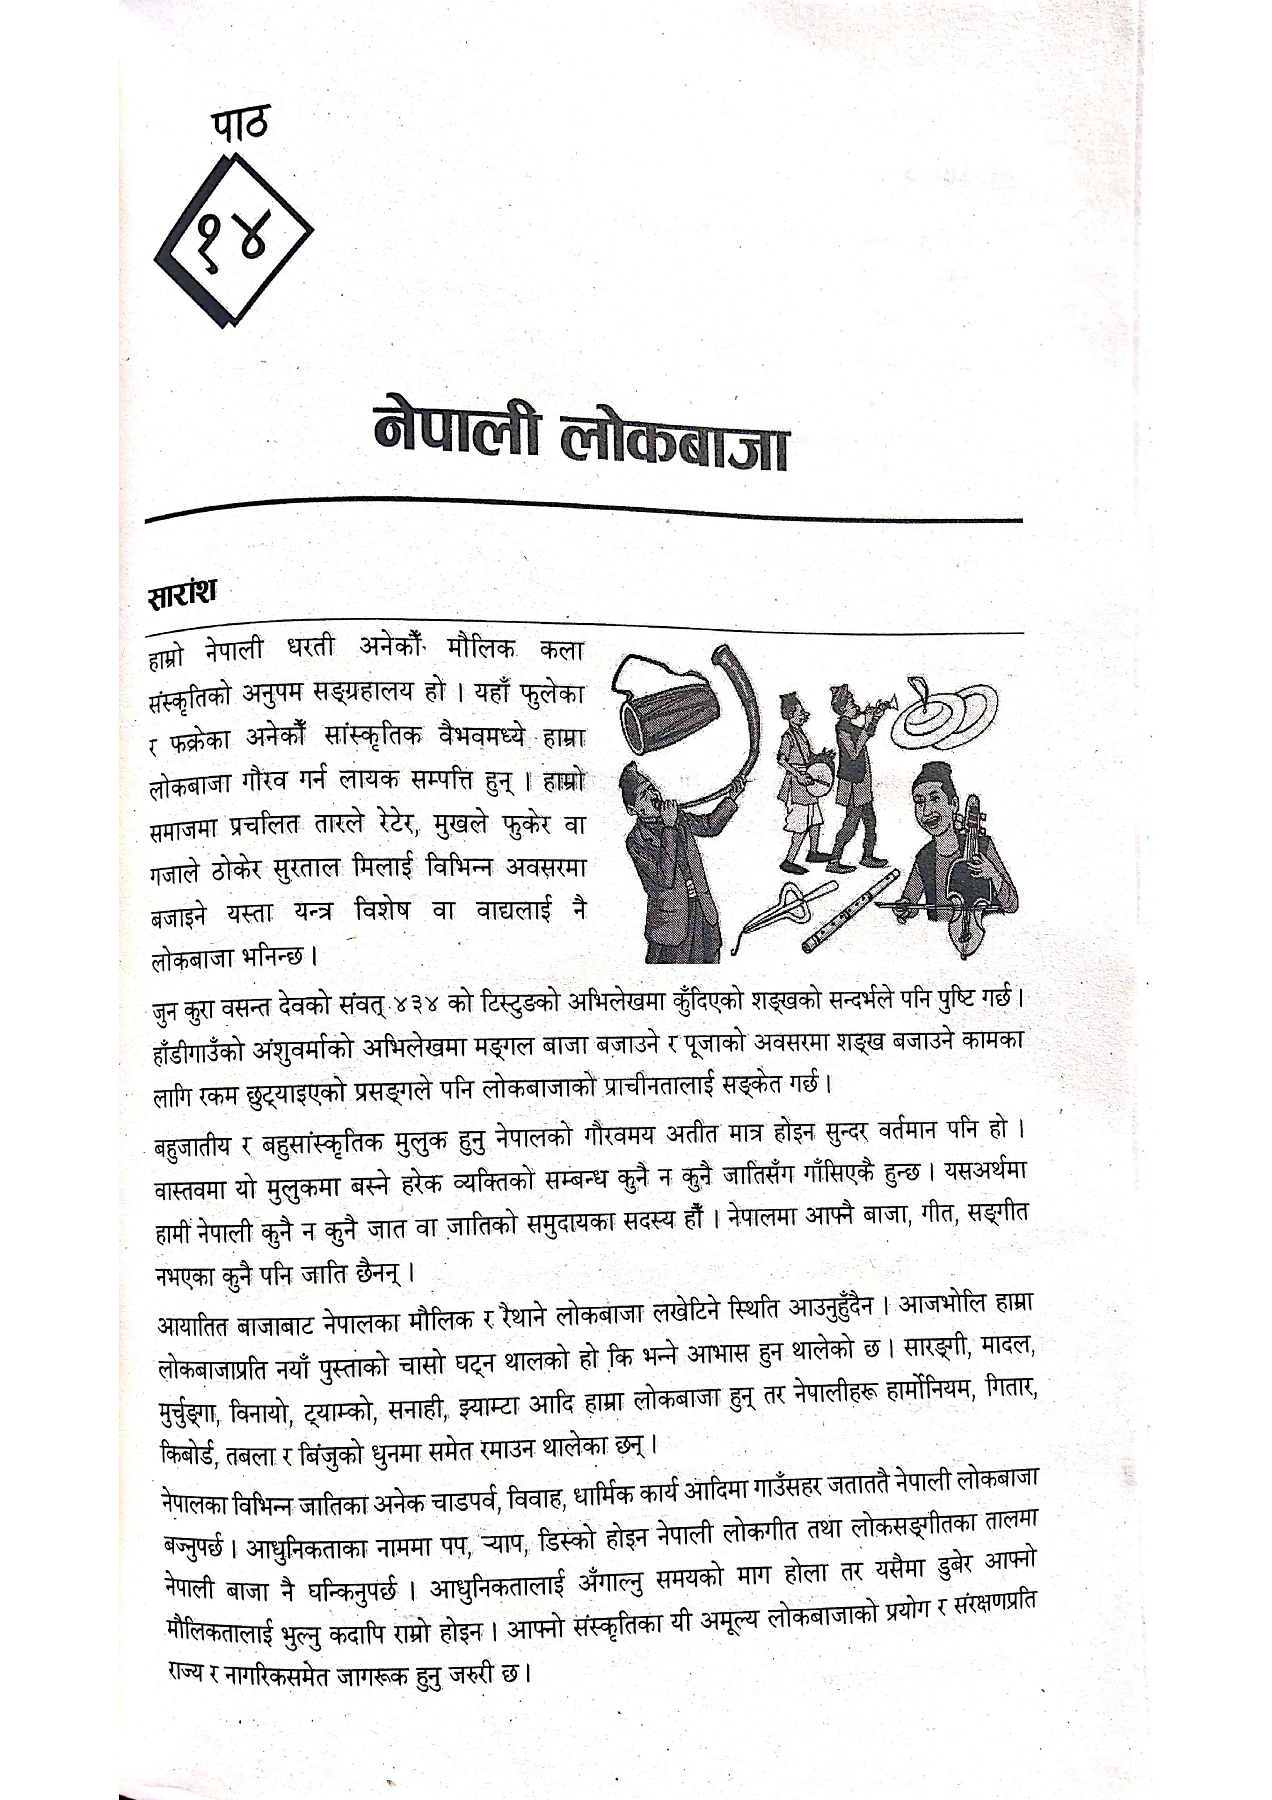 पाठ
१४
नेपाली लोकबाजा
सारांश
हाम्रो नेपाली धरती अनेकौँ मौलिक कला
संस्कृतिको अनुपम सङ्ग्रहालय हो । यहाँ फुलेका
र फक्रेका अनेकौँ सांस्कृतिक वैभवमध्ये हाम्रा
लोकबाजा गौरव गर्न लायक सम्पत्ति हुन् । हाम्रो
समाजमा प्रचलित तारले रेटेर, मुखले फुकेर वा
गजाले ठोकेर सुरताल मिलाई विभिन्न अवसरमा
बजाइने यस्ता यन्त्र विशेष वा वाद्यलाई नै
लोकबाजा भनिन्छ ।
जुन कुरा वसन्त देवको संवत् ४३४ को टिस्टुङको अभिलेखमा कुँदिएको शङ्खको सन्दर्भले पनि पुष्टि गर्छ ।
हाँडीगाउँको अंशुवर्माको अभिलेखमा मङ्गल बाजा बजाउने र पूजाको अवसरमा शङ्ख बजाउने कामका
लागि रकम छुट्याइएको प्रसङ्गले पनि लोकबाजाको प्राचीनतालाई सङ्केत गर्छ ।
बहुजातीय र बहुसांस्कृतिक मुलुक हुनु नेपालको गौरवमय अतीत मात्र होइन सुन्दर वर्तमान पनि हो ।
वास्तवमा यो मुलुकमा बस्ने हरेक व्यक्तिको सम्बन्ध कुनै न कुनै जातिसँग गाँसिएकै हुन्छ । यसअर्थमा
हामी नेपाली कुनै न कुनै जात वा जातिको समुदायका सदस्य हौँ । नेपालमा आफ्नै बाजा, गीत, सङ्गीत
नभएका कुनै पनि जाति छैनन् ।
आयातित बाजाबाट नेपालका मौलिक र रैथाने लोकबाजा लखेटिने स्थिति आउनुहुँदैन । आजभोलि हाम्रा
लोकबाजाप्रति नयाँ पुस्ताको चासो घट्न थालको हो कि भन्ने आभास हुन थालेको छ । सारङ्गी, मादल,
मुर्चुङ्गा, विनायो, ट्याम्को, सनाही, झ्याम्टा आदि हाम्रा लोकबाजा हुन् तर नेपालीहरू हार्मोनियम, गितार,
किबोर्ड, तबला र बिंजुको धुनमा समेत रमाउन थालेका छन् ।
नेपालका विभिन्न जातिका अनेक चाडपर्व, विवाह, धार्मिक कार्य आदिमा गाउँसहर जताततै नेपाली लोकबाजा
बज्नुपर्छ । आधुनिकताका नाममा पप, र्‍याप, डिस्को होइन नेपाली लोकगीत तथा लोकसङ्गीतका तालमा
नेपाली बाजा नै घन्किनुपर्छ । आधुनिकतालाई अँगाल्नु समयको माग होला तर यसैमा डुबेर आफ्नो
मौलिकतालाई भुल्नु कदापि राम्रो होइन । आफ्नो संस्कृतिका यी अमूल्य लोकबाजाको प्रयोग र संरक्षणप्रति
राज्य र नागरिकसमेत जागरूक हुनु जरुरी छ ।